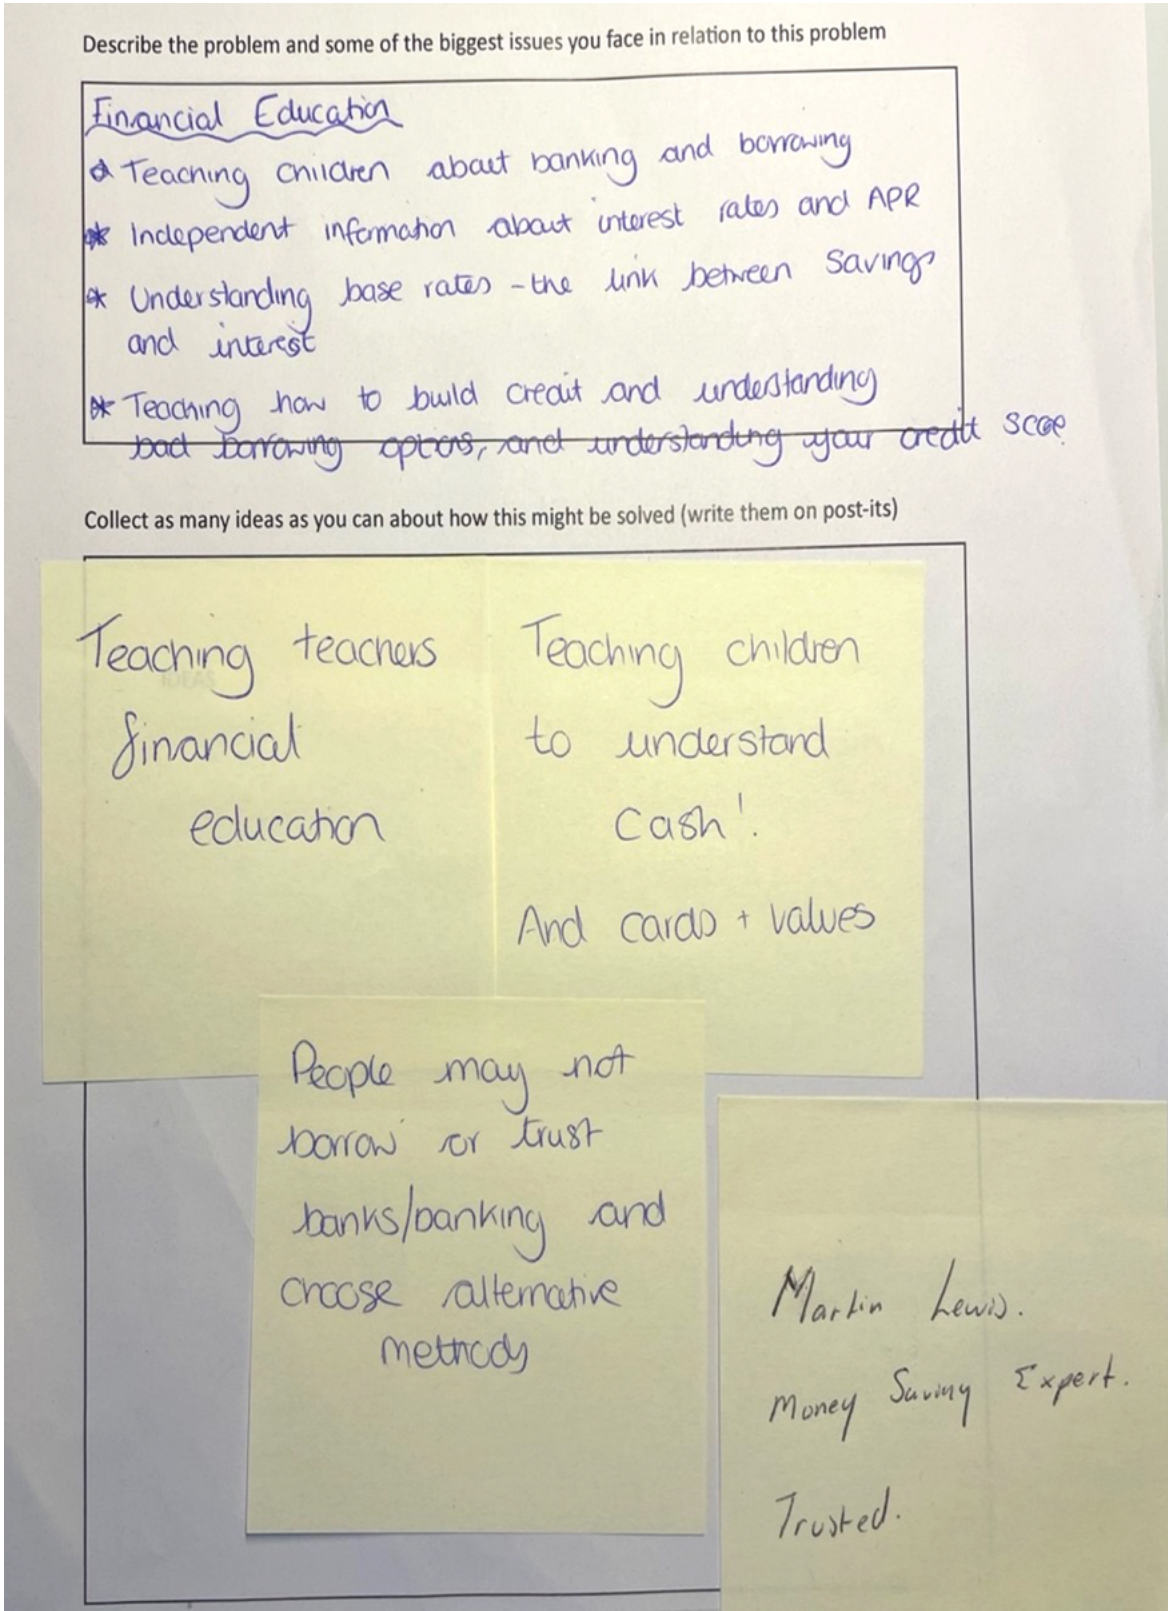 Describe the problem and some of the biggest issues you face in relation to this problem
Financial Education
* Teaching children about banking and borrowing
* Independent information about interest rates and APR
* Understanding base rates - the link between savings
and interest
* Teaching how to build credit and understanding
bad borrowing options, and understanding your credit score
Collect as many ideas as you can about how this might be solved (write them on post-its)
Teaching teachers
financial
education
IDEAS
Teaching children
to understand
cash!
And cards + values
People may not
borrow or trust
banks/banking and
choose alternative
methods
Martin Lewis.
Money Saving Expert.
Trusted.